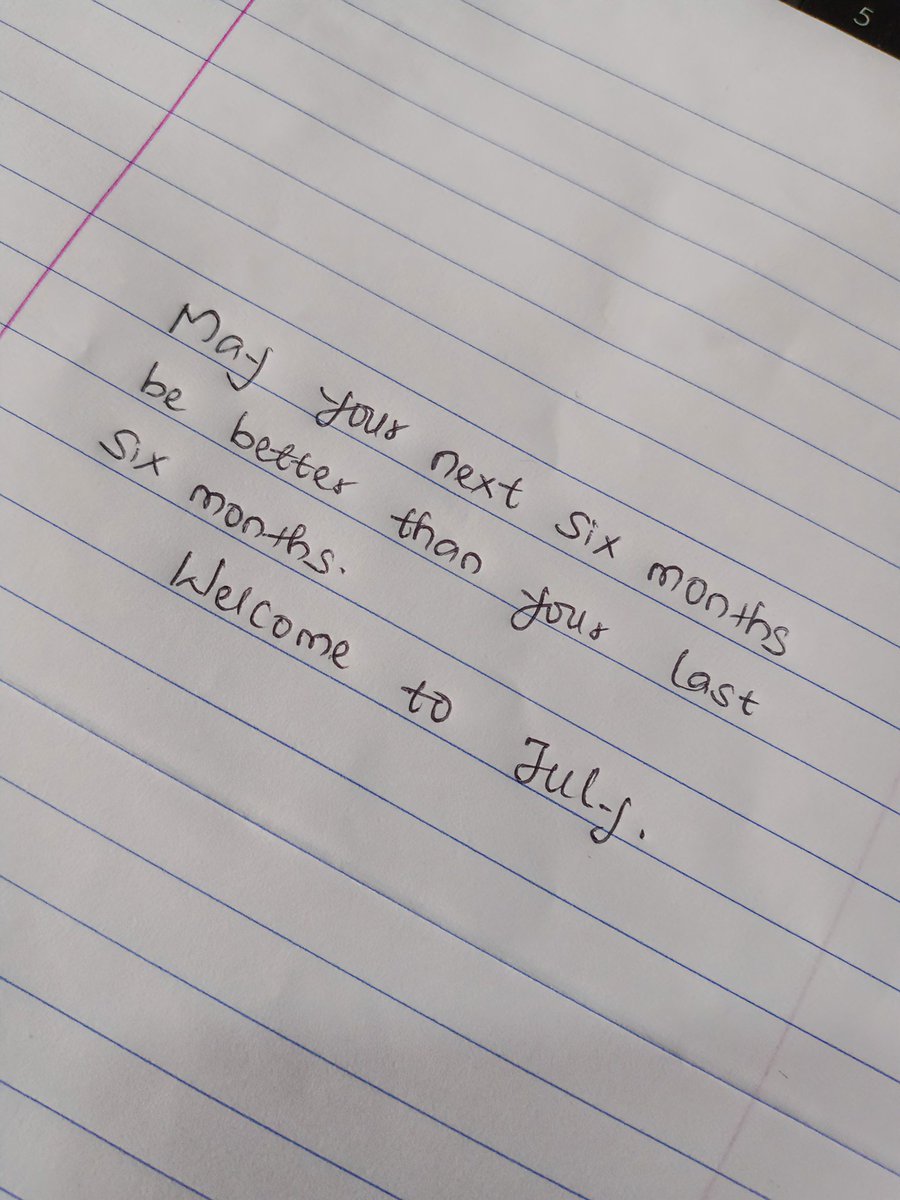 5
May your next six months
be better than your last
six months.
Welcome to July.